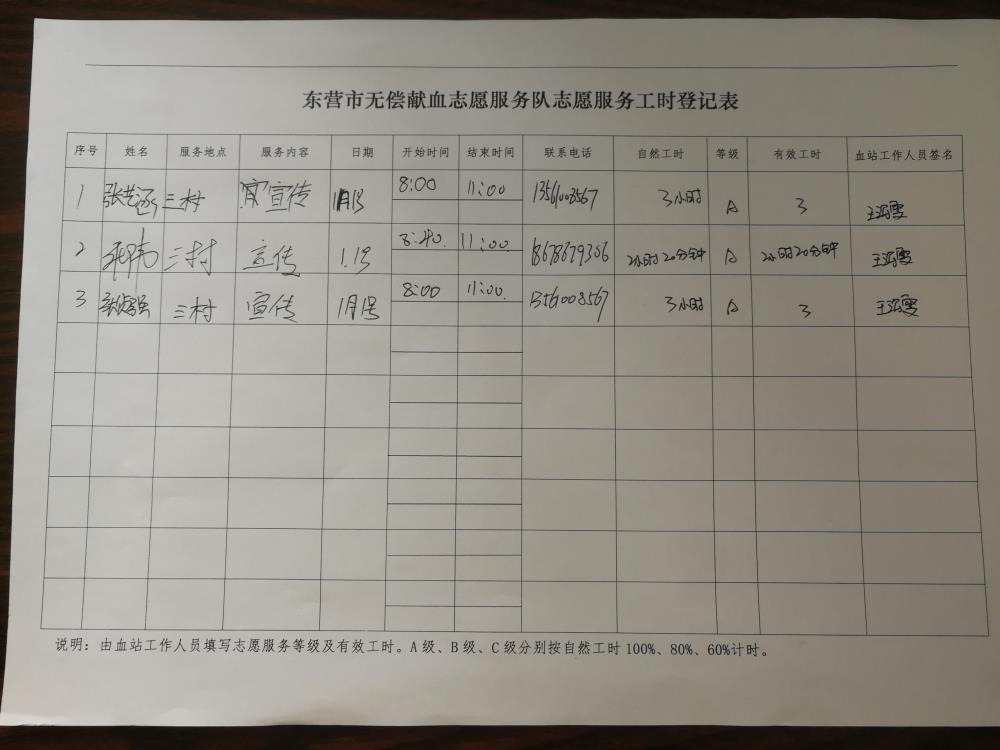 东营市无偿献血志愿服务队志愿服务工时登记表
序号 姓名 服务地点 服务内容 日期 开始时间 结束时间 联系电话 自然工时 等级 有效工时 血站工作人员签名
1 三村 宣传 1月1号 8:00 11:00 13561008567 3小时 A 3
2 三村 宣传 1.1号 8:40. 11:00. 18678679306 2小时20分钟 A 2小时20分钟
3 三村 宣传 1月1号 8:00 11:00. 13561008567 3小时 A 3
说明：由血站工作人员填写志愿服务等级及有效工时。A级、B级、C级分别按自然工时100%、80%、60%计时。